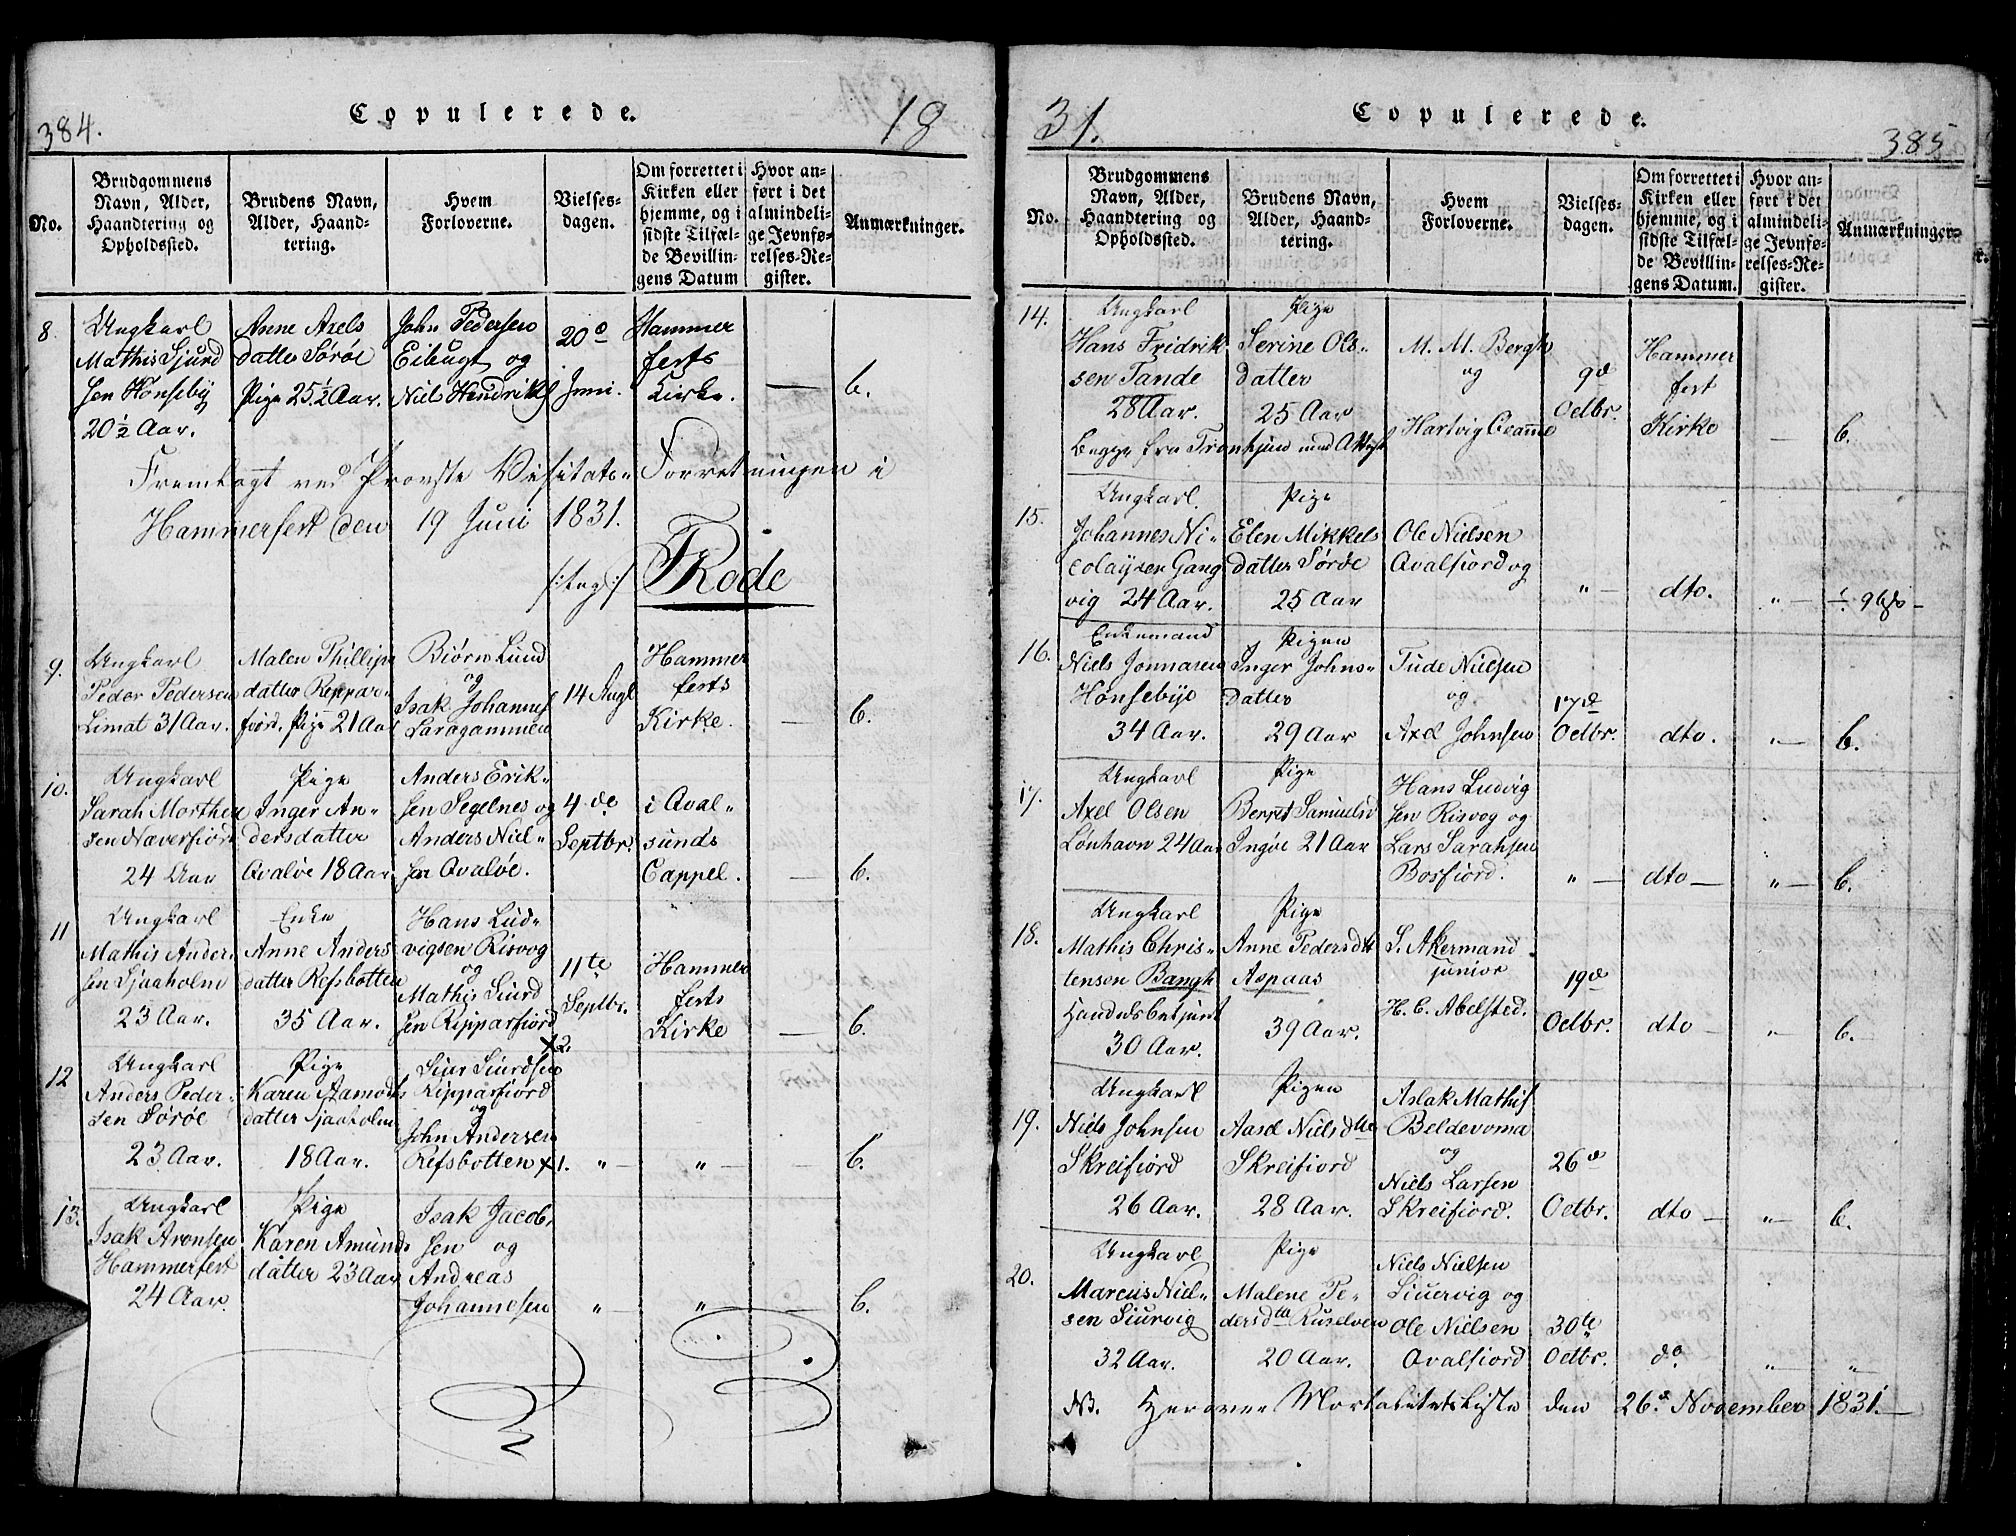 384.
Copulerede.
18
No.
Brudgommens
Navn, Alder,
Haandtering og
Opholdssted.
Brudens Navn,
Alder, Haand-
tering.
Hvem
Forloverne.
Vielses-
dagen.
Om forrettet i
Kirken eller
hjemme, og i
sidste Tilfæl-
de Bevillin-
gens Datum
Hvor an-
ført i det
almindeli-
ge Jevnfø-
relses-Re-
gister.
Anmærkninger.
8.
Ungkarl
Mathis Sjurd
sen Hønseby
20 ½ Aar.
Anne Axels
datter Sørøe
Pige 25 ½ Aar.
John Pedersen
Eibugt og
Niels Hendriks
20de
Juni.
Hammer
ferts
Kirke.
—
b.
Fremlagt ved Provste Visitats-Forretningen i
Hammerfest den 19 Juni 1831.
/:tag:/ TRode
9.
Ungkarl
Peder Pedersen
Limat 31 Aar.
Malen Phillips
datter Reppar-
fiord, Pige 21 Aar
Biørn Lund
og
Isak Johannes
Laragammen
14 Augt
Hammer
ferts
Kirke.
—
b.
10.
Ungkarl
Sarah Morthen
sen Næverfiord
24 Aar
Pige
Inger An-
dersdatter
Qvaløe 18 Aar
Anders Erik-
sen Segelnes og
Anders Niel-
sen Qvaløe.
4de
Septbr.
i Qval-
sunds
Cappel.
—
b.
11
Ungkarl
Mathis Ander-
sen Sjaaholm
23 Aar.
Enke
Anne Anders
datter Refsbotten
35 Aar.
Hans Lud-
vigsen Risvog
og
Mathis Siurd
sen Ripparfiord
×2.
11te
Septbr.
Hammer
ferts
Kirke
—
b.
12
Ungkarl
Anders Peder-
sen Sørøe
23 Aar.
Pige
Karen Aamods
datter Sjaaholm
18 Aar.
Siur Siurdsen
Ripparfiord
og
John Andersen
Refsbotten ×1.
" —
" —
—
b.
13.
Ungkarl
Isak Aronsen
Hammerfest
24 Aar.
Pige
Karen Amunds
datter 23 Aar
Isak Jacob-
sen og
Andreas
Johannesen
" —
" —
—
b.
31.
Copulerede.
385
No.
Brudgommens
Navn, Alder,
Haandtering og
Opholdssted.
Brudens Navn,
Alder, Haand-
tering.
Hvem
Forloverne.
Vielses-
dagen.
Om forrettet i
Kirken eller
hjemme, og i
sidste Tilfæl-
de Bevillin-
gens Datum.
Hvor an-
ført i det
almindeli-
ge Jevnfø-
relses-Re-
gister.
Anmærkninger.
14.
Ungkarl
Hans Fridrik
sen Tande
28 Aar.
Pige
Serine Ols-
datter
25 Aar
Begge fra Tronhjem med Attest
M. M. Bergh
og
Hartvig
9de
Octbr.
Hammer
fest
Kirke
—
b.
15.
Ungkarl.
Johannes Ni-
colaysen Gang
vig 24 Aar.
Pige
Elen Mikkels
datter Sørøe
25 Aar
Ole Nielsen
Qvalfiord og
" —
dto.
" —
16.
Enkemand
Niels Jonnasen
Hønsebye
34 Aar.
Pigen
Inger Johns-
datter
29 Aar
Tude Nielsen
og
Axel Johnsen
17de
Octbr.
dto.
" —
b.
17.
Ungkarl
Axel Olsen
Lønhavn 24 Aar
Pige
Berret Samuelsd
Ingøe 21 Aar
Hans Ludvig
sen Risvog og
Lars Sarahsen
Bosfiord.
" —
dto —
" —
b.
18.
Ungkarl
Mathis Chris-
tensen Bangh
Handelsbetjent
30 Aar.
Pige
Anne Pedersdtr
Aspaas
39 Aar.
S. Akermand
junior
H. C. Abelsted.
19de
Octbr.
dto —
"
b.
19.
Ungkarl
Niels Johnsen
Skreifiord
26 Aar.
Pigen
Aasel Nielsdtr
Skreifiord
28 Aar.
Aslak Mathis
Beldevoma
og
Niels Larsen
Skreifiord.
26de
Octbr.
dto —
" —
b.
20.
Ungkarl
Marcus Niel-
sen Siurvig
32 Aar.
Pige
Malene Pe-
dersdtr Ruselven
20 Aar.
Niels Nielsen
Siuervig og
Ole Nielsen
Qvalfiord
30te
Octbr.
do
" —
"
NB. Herover Mortalitetsliste den 26de November 1831. —